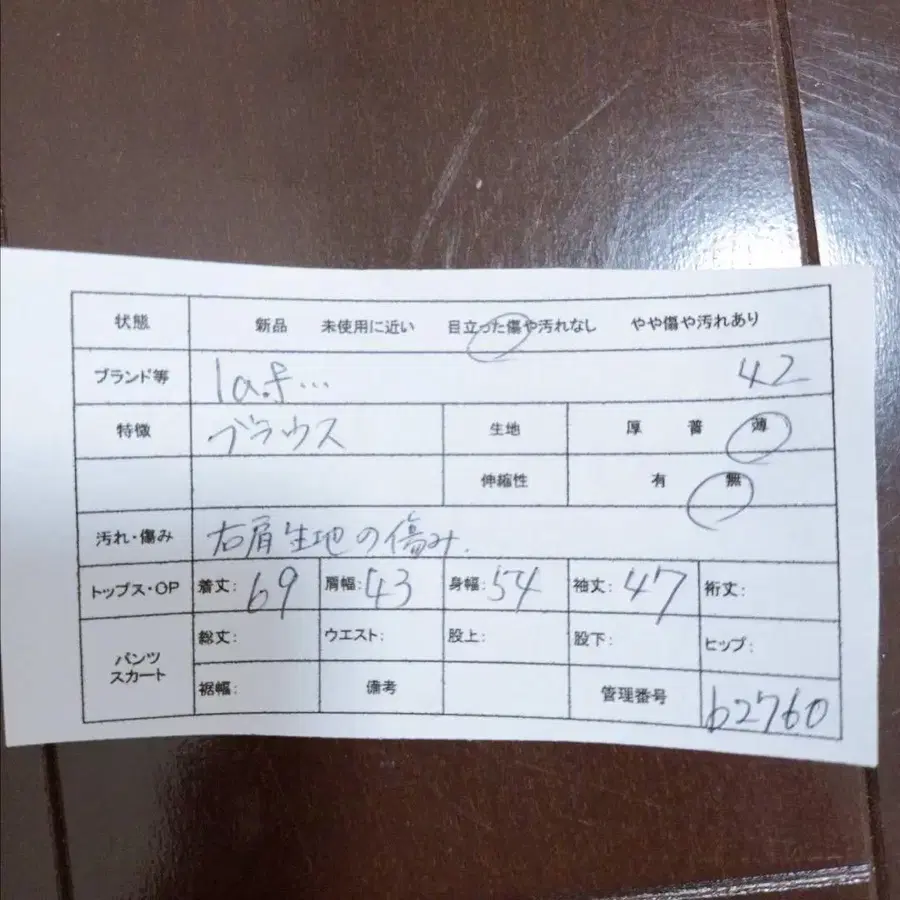 状態 新品 未使用に近い 目立った傷や汚れなし やや傷や汚れあり
ブランド等 la.f... 42
特徴 ブラウス 生地 厚 普 薄
伸縮性 有 無
汚れ・傷み 右肩生地の傷み.
トップス・OP 着丈: 69 肩幅: 43 身幅: 54 袖丈: 47 裄丈:
パンツ スカート 総丈: ウエスト: 股上: 股下: ヒップ:
裾幅: 備考 管理番号 b2760